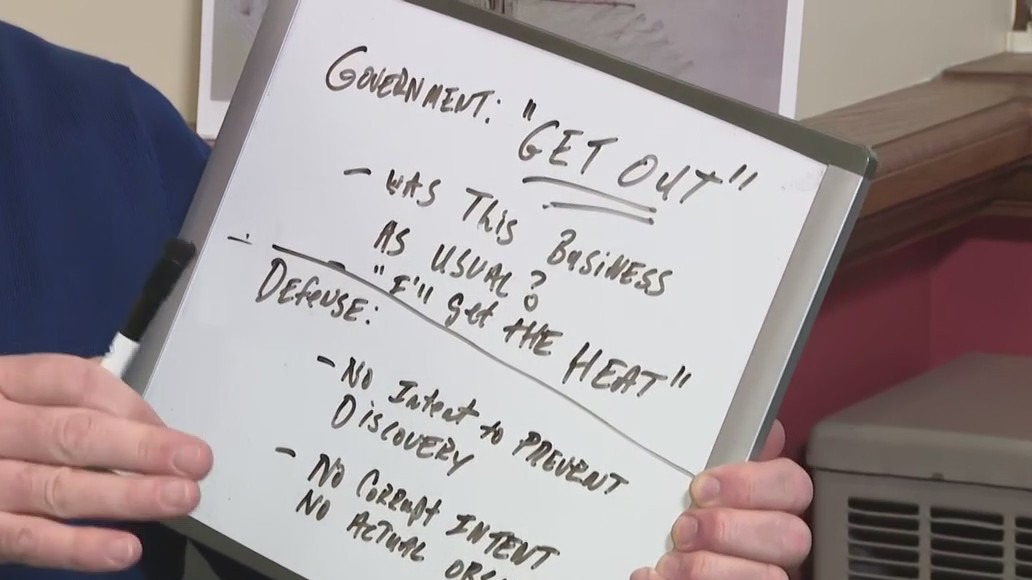 GOVERNMENT: "GET OUT"
- WAS THIS BUSINESS
AS USUAL?
- "I'll Get THE HEAT"
Defense:
- No Intent to PREVENT
DISCOVERY
- No Corrupt INTENT
NO ACTUAL